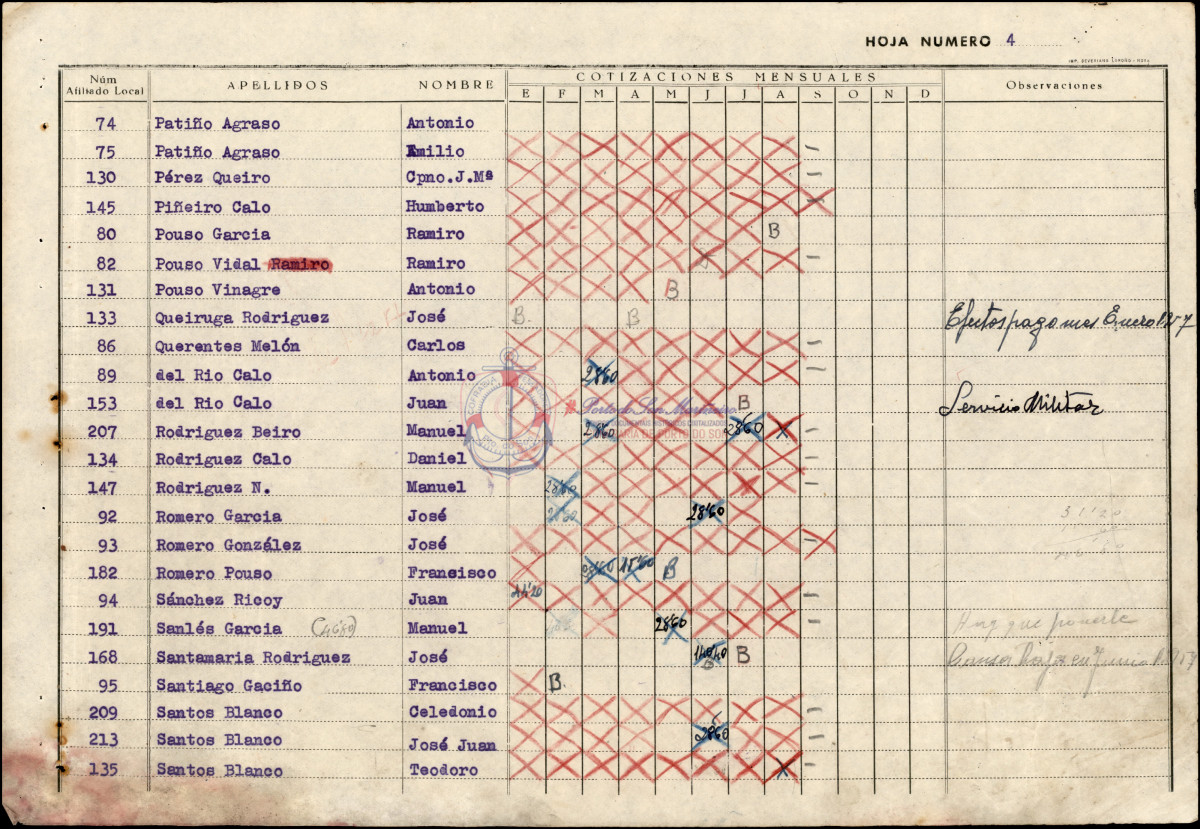 HOJA NUMERO 4
Núm Afiliado Local APELLIDOS NOMBRE COTIZACIONES MENSUALES Observaciones
E F M A M J J A S O N D
74 Patiño Agraso Antonio
75 Patiño Agraso Emilio
130 Pérez Queiro Cpno.J.Mª
145 Piñeiro Calo Humberto
80 Pouso Garcia Ramiro B
82 Pouso Vidal Ramiro Ramiro
131 Pouso Vinagre Antonio B
133 Queiruga Rodriguez José B B Efectos pago mes Enero 1957
86 Querentes Melón Carlos
89 del Rio Calo Antonio 28'60
153 del Rio Calo Juan B Servicio Militar
207 Rodriguez Beiro Manuel 28'60 28'60
134 Rodriguez Calo Daniel
147 Rodriguez N. Manuel 28'60
92 Romero Garcia José 28'60
93 Romero González José
182 Romero Pouso Francisco 15'60 B
94 Sánchez Ricoy Juan 44'20
191 Sanlés Garcia Manuel 28'60 Hay que ponerle
168 Santamaria Rodriguez José B B Causa Baja en Junio 1957
95 Santiago Gaciño Francisco B
209 Santos Blanco Celedonio
213 Santos Blanco José Juan 28'60
135 Santos Blanco Teodoro